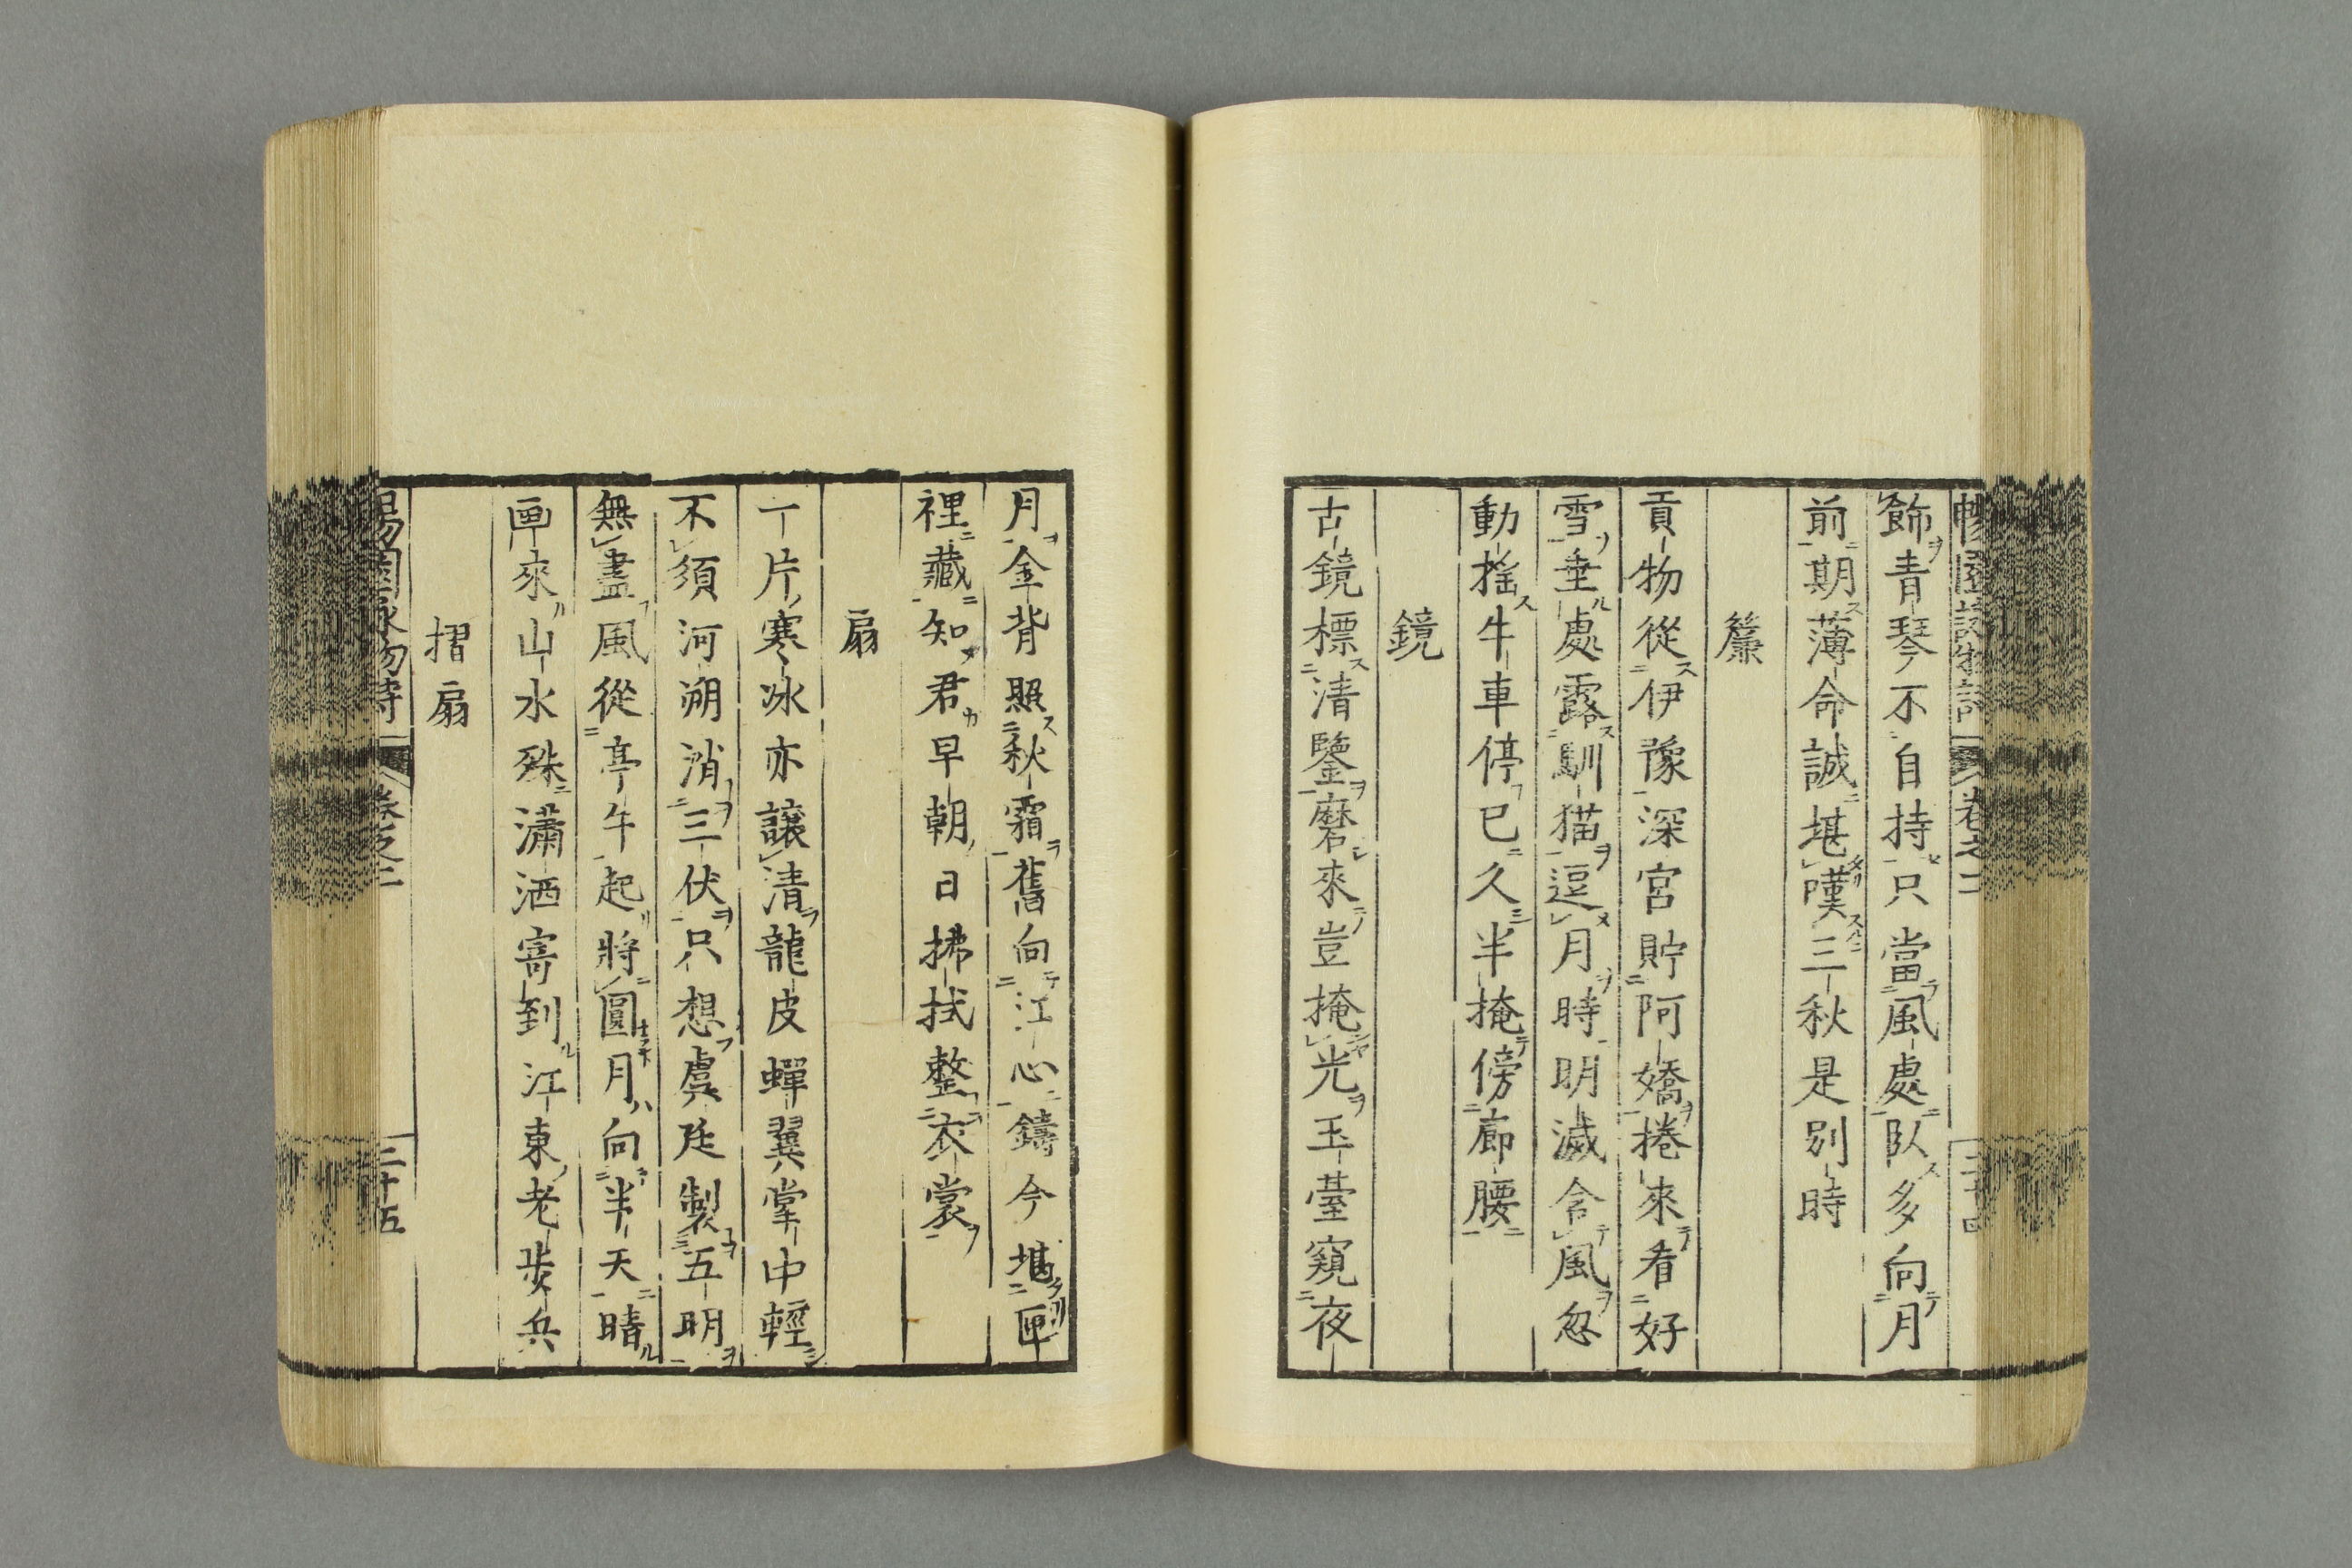 暢園詠物詩 卷之二 二十四
飾青琴不自持只當風處队多向月
前期薄命誠堪嘆三秋是別時
簾
貢物從伊豫深宮貯阿嬌捲來看好
雪垂處露馴猫逗月時明滅含風忽
動搖牛車停已久半掩傍廊腰
鏡
古鏡標清鑒磨來豈掩光玉臺窺夜
月金背照秋霜舊向江心鑄今堪匣
裡藏知君早朝日拂拭整衣裳
扇
一片寒冰亦讓清龍皮蟬翼掌中輕
不須河朔消三伏只想虞廷製五明
無盡風從亭午起將圓月向半天晴
画來山水殊瀟洒寄到江東老步兵
摺扇
暢園詠物詩 卷之二 二十五